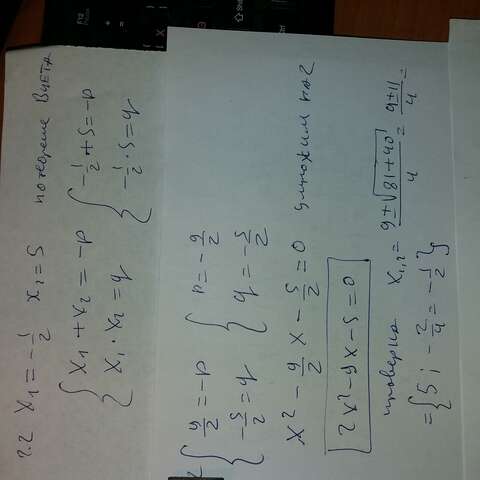 2.2 x₁ = -1/2 x₂ = 5 по теореме Виета
{ x₁ + x₂ = -p { -1/2 + 5 = -p
{ x₁ · x₂ = q { -1/2 · 5 = q
{ 9/2 = -p { p = -9/2
{ -5/2 = q { q = -5/2
x² - 9/2 x - 5/2 = 0 умножим на 2
2x² - 9x - 5 = 0
проверка x₁,₂ = (9 ± √(81 + 40))/4 = (9 ± 11)/4 =
= {5; -2/4 = -1/2}